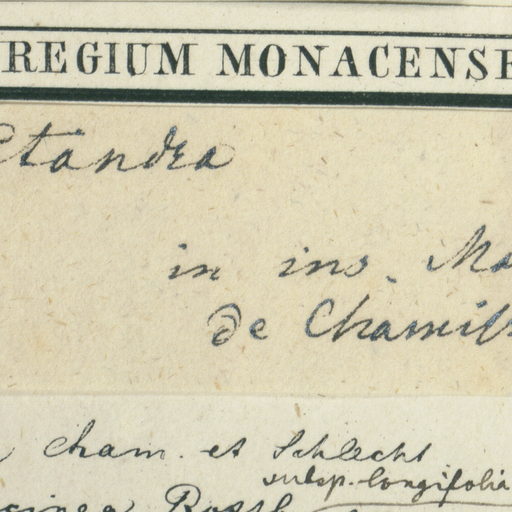 REGIUM MONACENSE
ctandra
in ins. Ma
De Chamiss
Cham. et Schlecht
subsp. longifolia